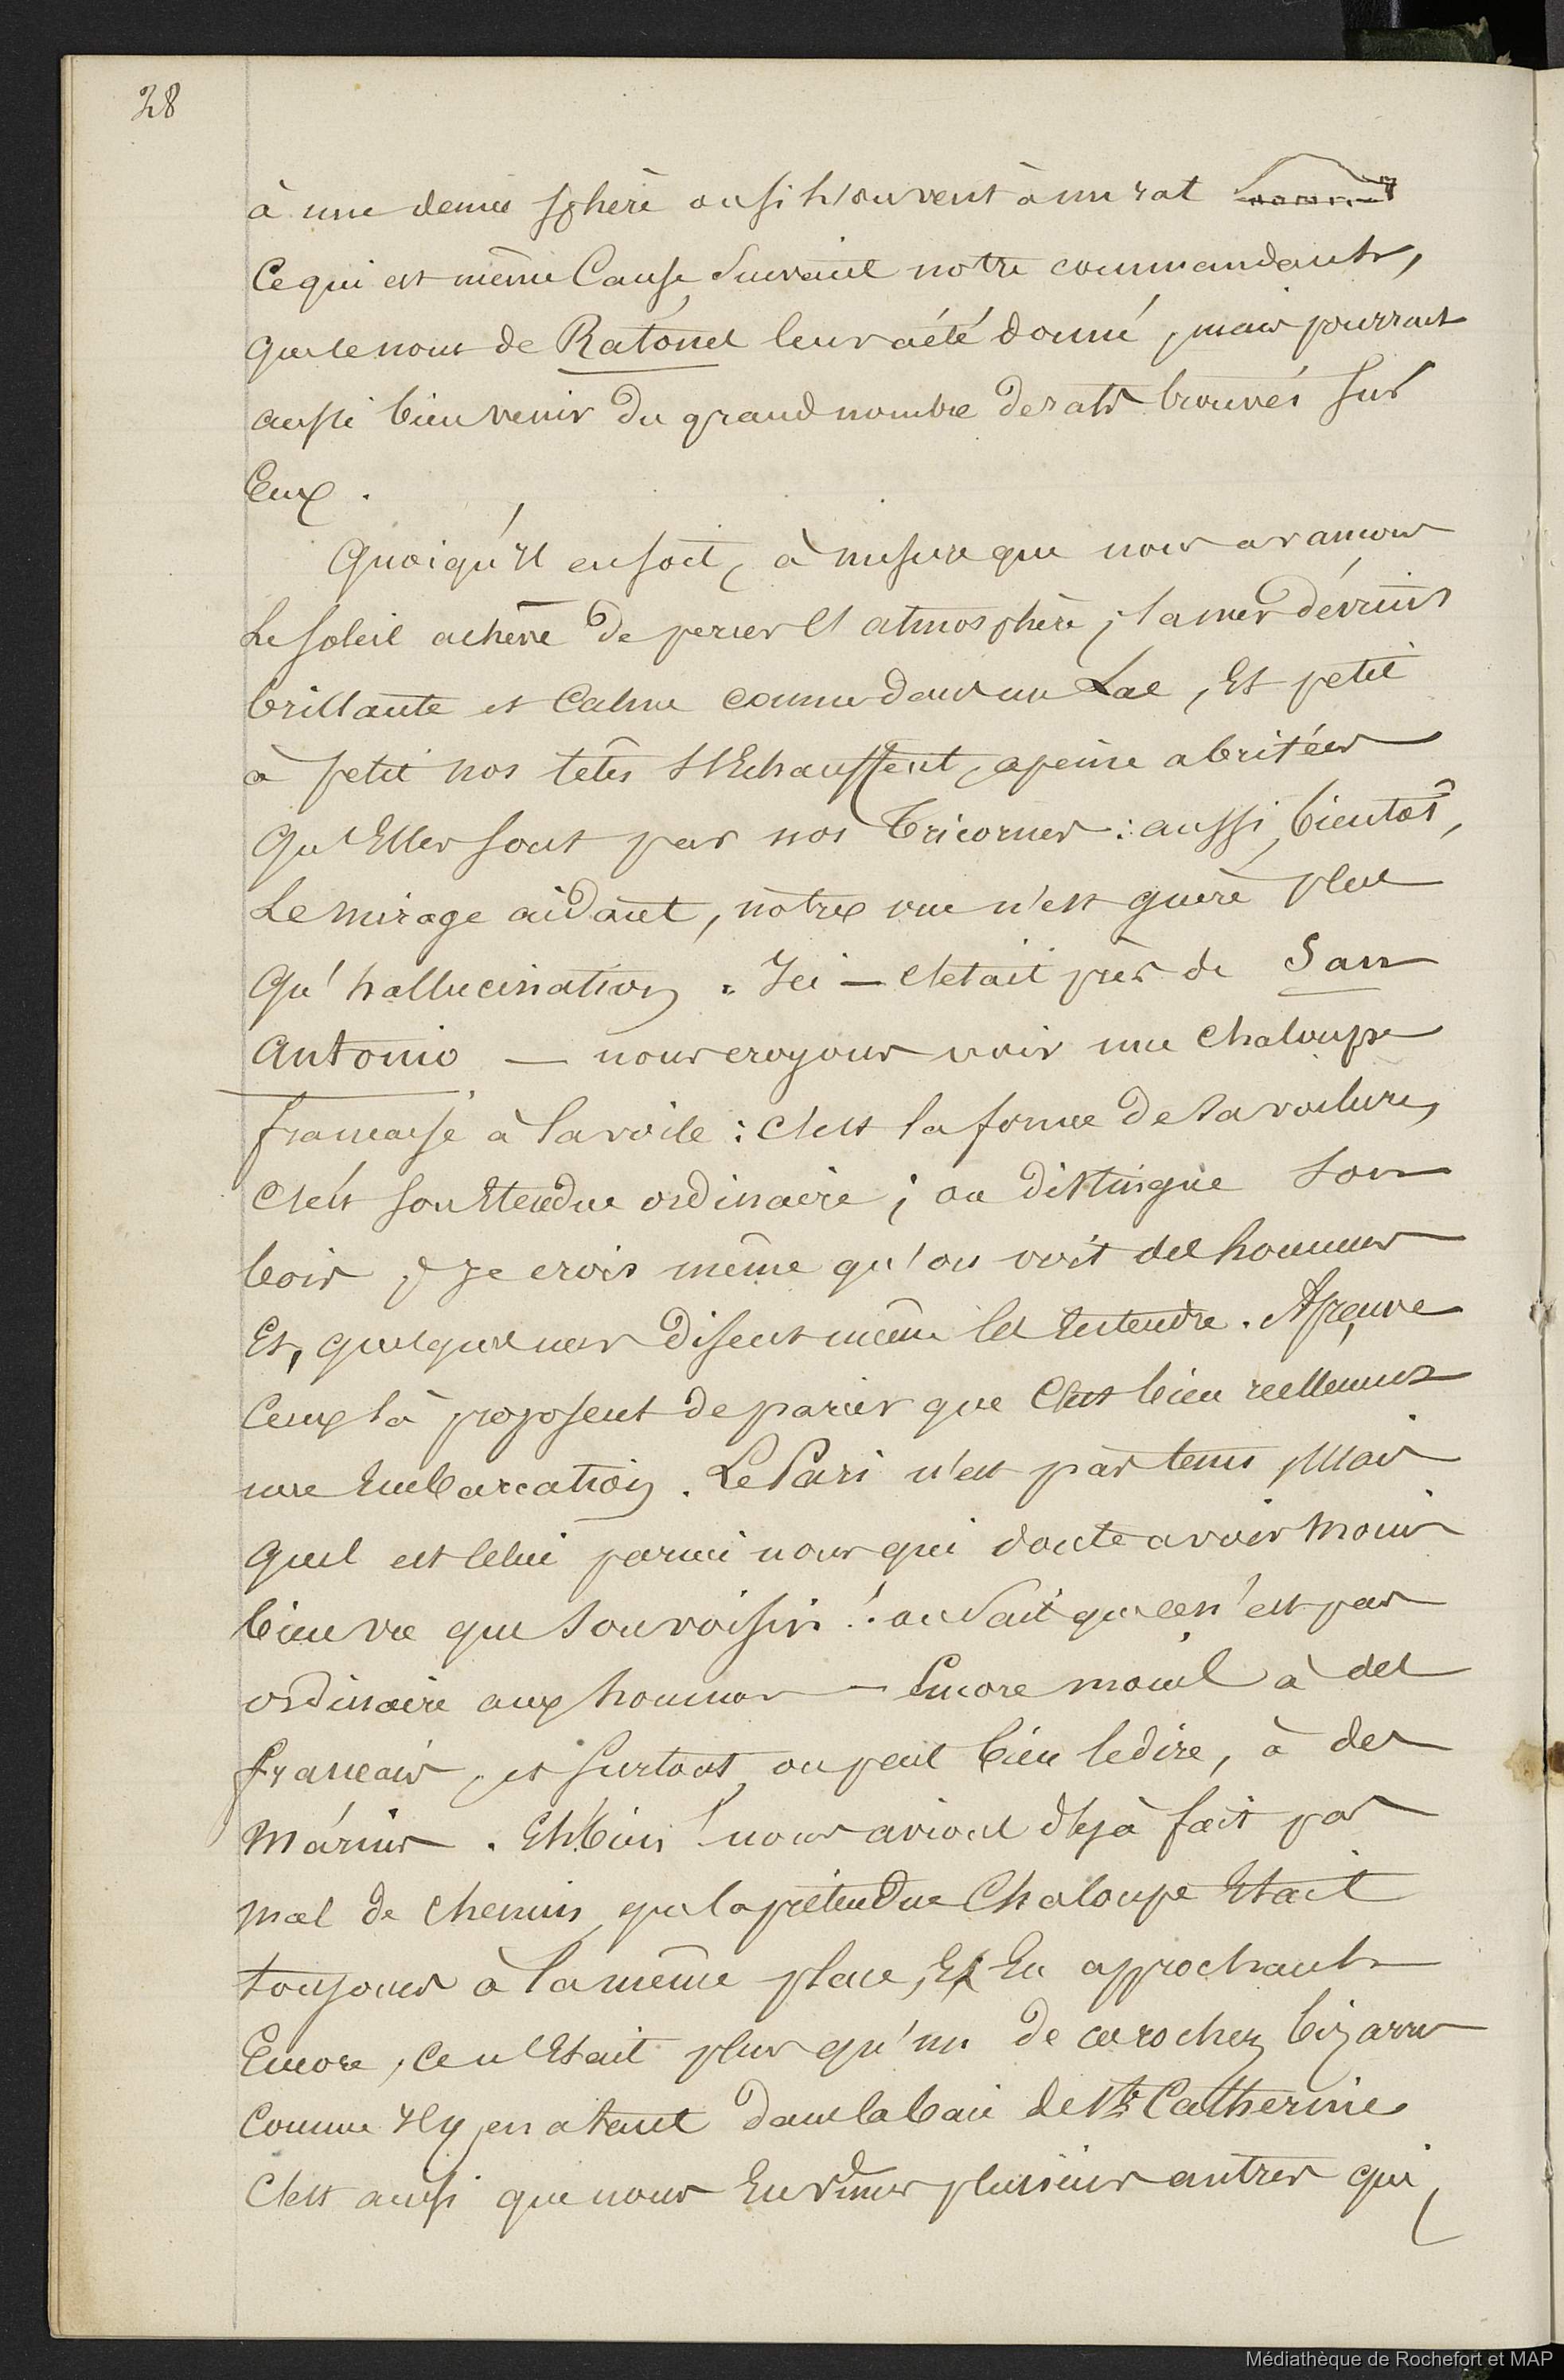 28
à une demie sphère ou si souvent à un rat
Ce qui est même Cause suivant notre commandant,
que le nom de Ratônes leur a été donné, mais pourrait
aussi bien venir du grand nombre de rats trouvés sur
Eux.
Quoiqu'Il en soit, à mesure que nous avançons
Le soleil achève de percer l'atmosphère ; la mer dévient
brillante et Calme comme dans un Lac, Et petit
à petit nos têtes s'Echauffent, apeine abritées
Qu'Elles sont par nos Tricornes : aussi, bientot,
Le mirage aidant, notre vue n'est guère plus
Qu'hallucination. Ici — c'etait près de San
Antonio — nous croyons voir une chaloupe
francaise à la voile : c'est la forme de sa voilure,
c'est son Etendue ordinaire ; on distingue son
bois, Je crois même qu'on voit des hommes
Et, quelques uns disent même les Entendre. A preuve
Ceux là proposent de parier que C'est bien reellement
une Embarcation. Le Pari n'est pas tenu, Mais
quel est celui parmi nous qui doute avoir moins
bien vu que son voisin ! on sait que ce n'est pas
ordinaire aux hommes — Encore moins à des
francais, et surtout, on peut bien le dire, à des
Marins. Eh bien ! nous avions déjà fait pas
mal de chemin, que la prétendue Chaloupe Etait
toujours à la même place, Et En approchant
Encore, ce n'Etait plus qu'un de ces rochers bizarres
Comme Il y en a tant dans la baie de Ste Catherine
C'est ainsi que nous En vimes plusieurs autres qui,
Médiathèque de Rochefort et MAP